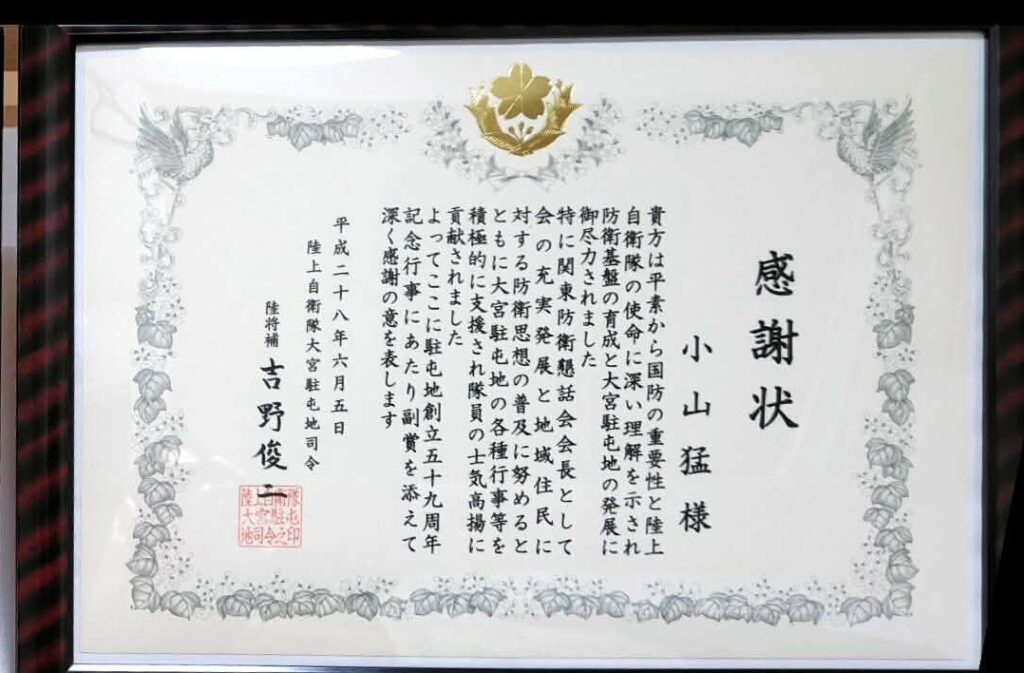 感謝状
小山猛様
貴方は平素から国防の重要性と陸上
自衛隊の使命に深い理解を示され
防衛基盤の育成と大宮駐屯地の発展に
御尽力されました
特に関東防衛懇話会会長として
会の充実発展と地域住民に
対する防衛思想の普及に努めると
ともに大宮駐屯地の各種行事等を
積極的に支援され隊員の士気高揚に
貢献されました
よってここに駐屯地創立五十九周年
記念行事にあたり副賞を添えて
深く感謝の意を表します
平成二十八年六月五日
陸上自衛隊大宮駐屯地司令
陸将補 吉野俊二
陸上自衛隊
大宮駐屯
地司令之印